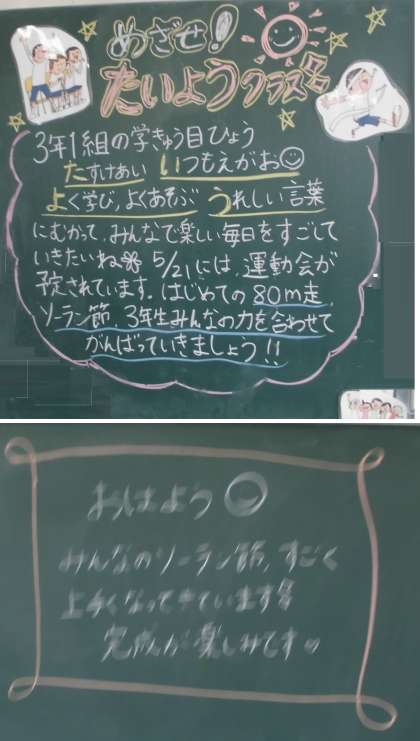 めざせ!
たいようクラス名
3年1組の学きゅう目ひょう
たすけあい いつもえがお
よく学び,よくあそぶ うれしい言葉
にむかって,みんなで楽しい毎日をすごして
いきたいね 5/21には,運動会が
予定されています.はじめての80m走,
ソーラン節,3年生みんなの力を合わせて
がんばっていきましょう!!
おはよう
みんなのソーラン節,すごく
上手くなってきています
完成が楽しみです